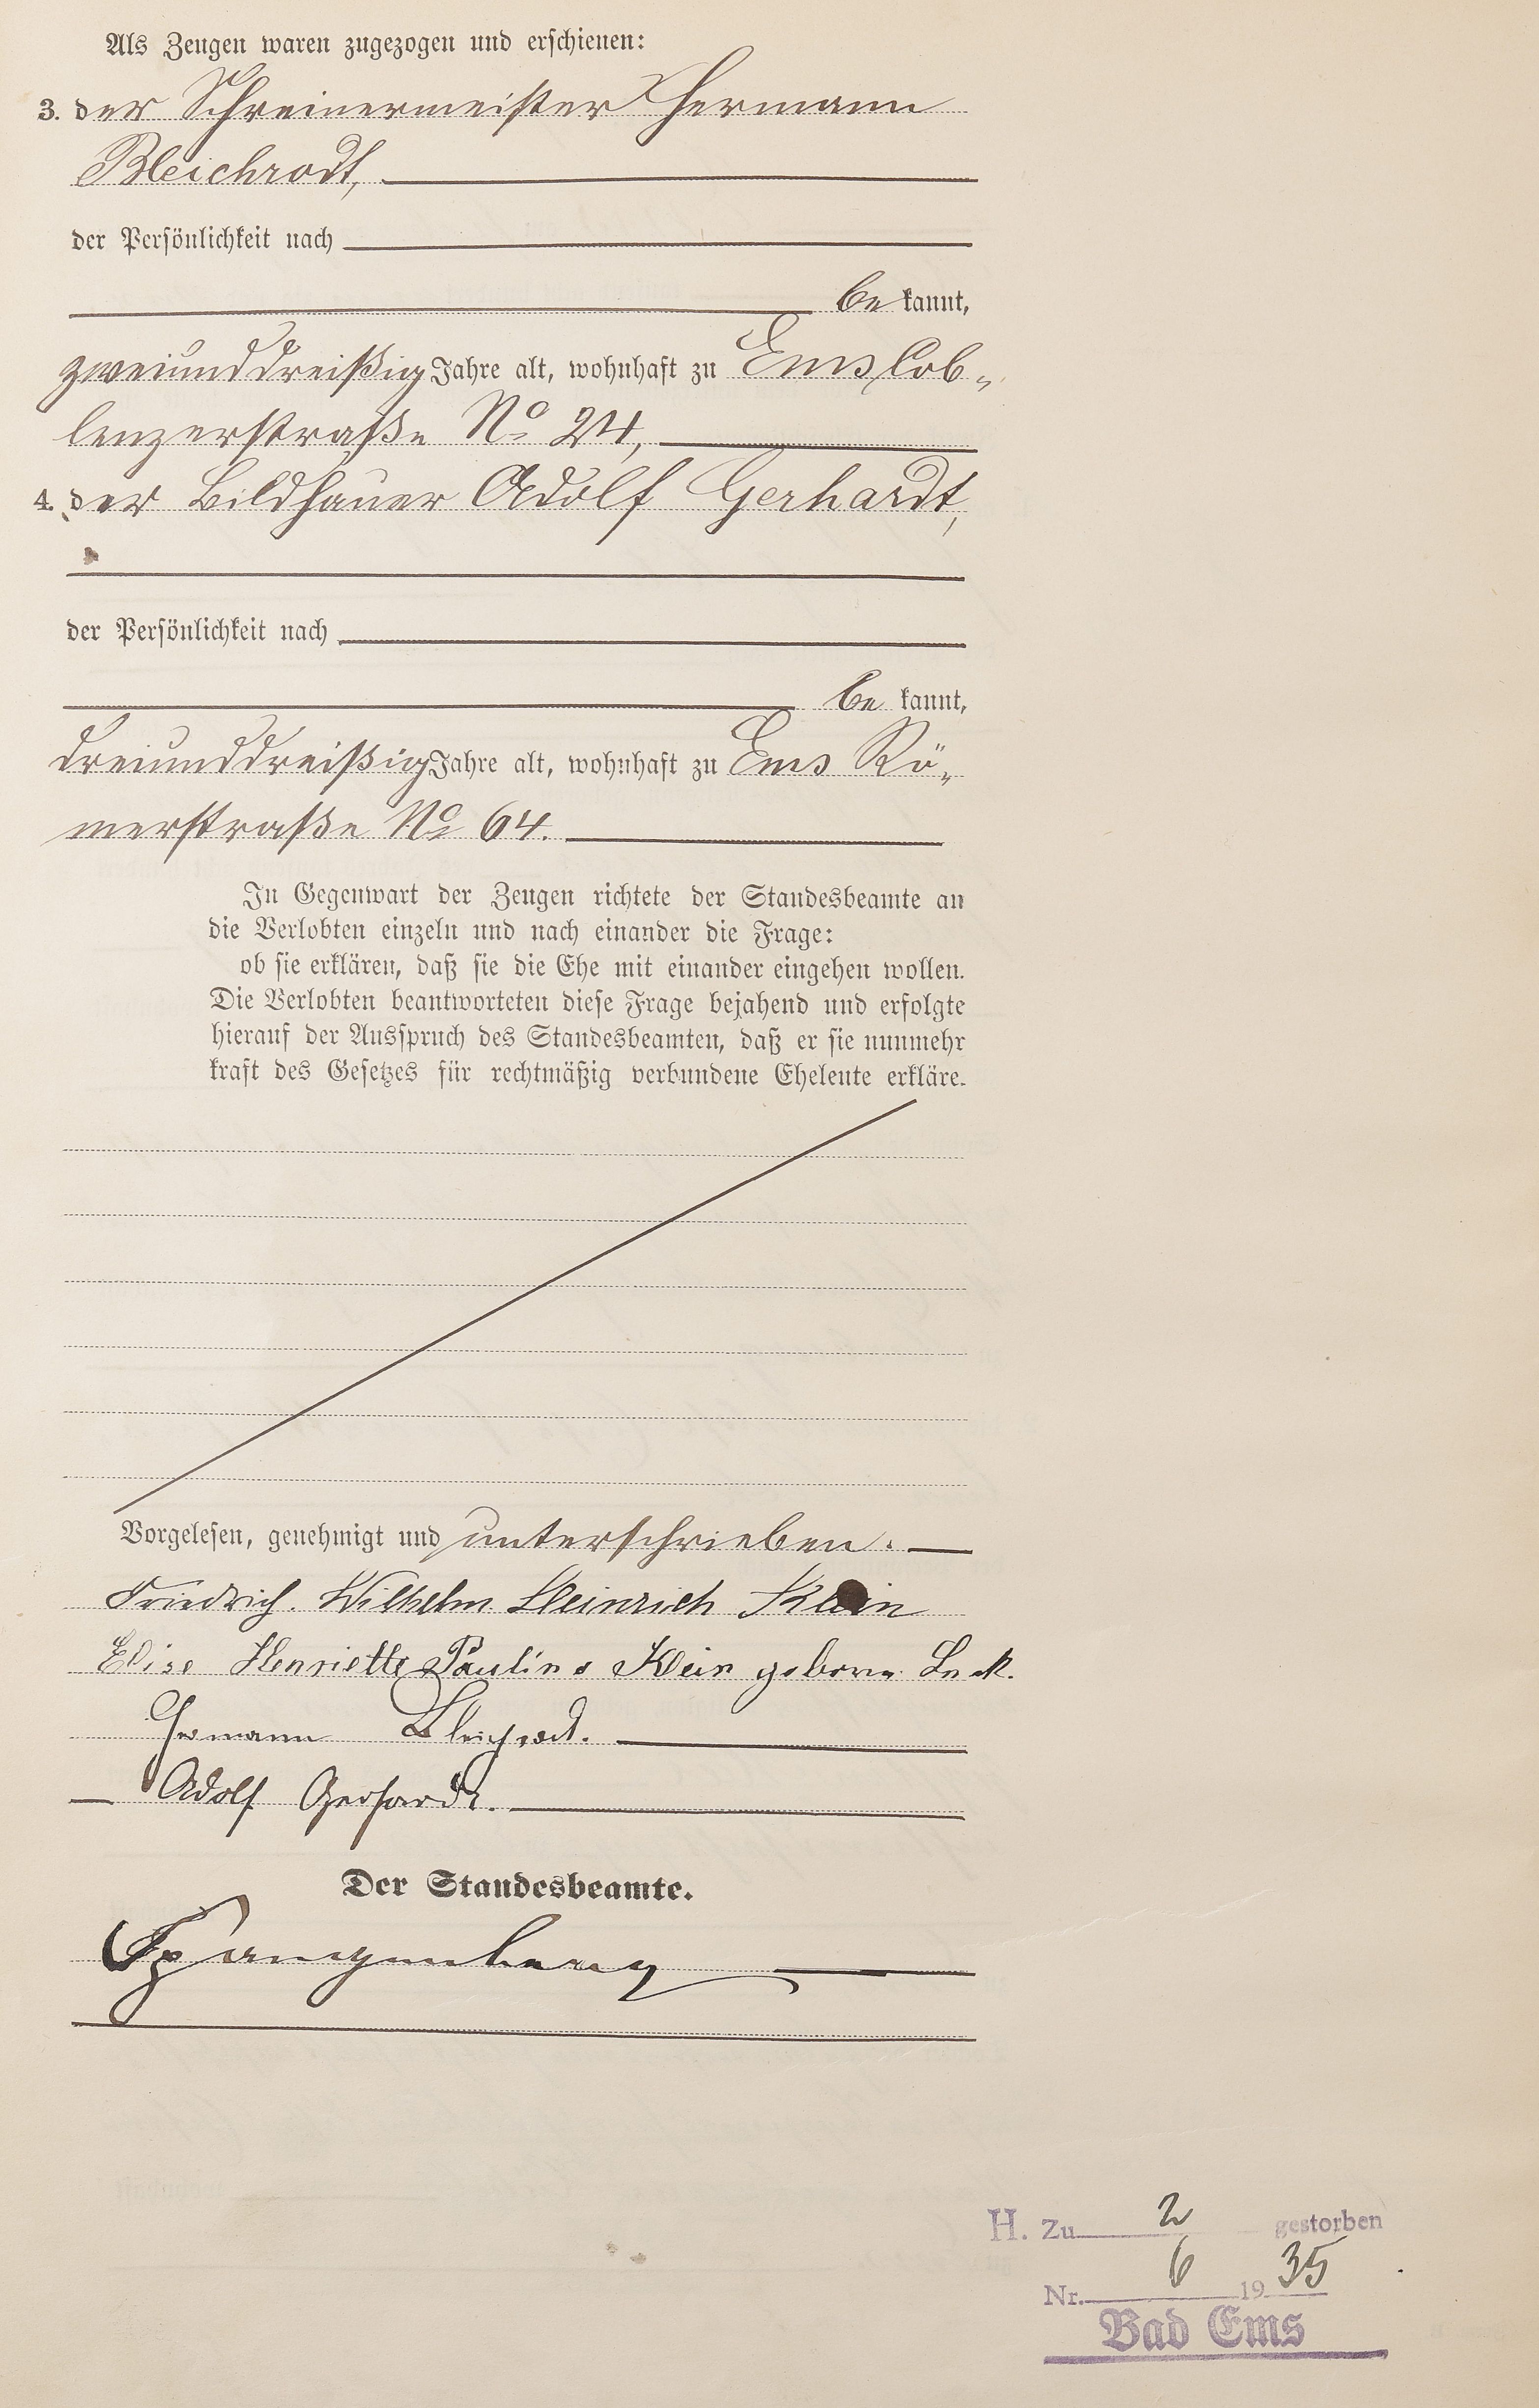 Als Zeugen waren zugezogen und erschienen:
3. der Schreinermeister Hermann
Bleichrodt,
der Persönlichkeit nach
be kannt,
zweiunddreißig Jahre alt, wohnhaft zu Ems Cob-
lenzerstraße No 24,
4. der Bildhauer Adolf Gerhardt,
der Persönlichkeit nach
be kannt,
dreiunddreißig Jahre alt, wohnhaft zu Ems Rö-
merstraße No 64.
In Gegenwart der Zeugen richtete der Standesbeamte an
die Verlobten einzeln und nach einander die Frage:
ob sie erklären, daß sie die Ehe mit einander eingehen wollen.
Die Verlobten beantworteten diese Frage bejahend und erfolgte
hierauf der Ausspruch des Standesbeamten, daß er sie nunmehr
kraft des Gesetzes für rechtmäßig verbundene Eheleute erkläre.
Vorgelesen, genehmigt und unterschrieben.
Friedrich. Wilhelm Heinrich Klein
Elise Henriette Pauline Klein geborne
Hermann Bleichrodt.
Adolf Gerhardt.
Der Standesbeamte.
Spangenberg
H. Zu 2 gestorben
Nr. 6 1935
Bad Ems